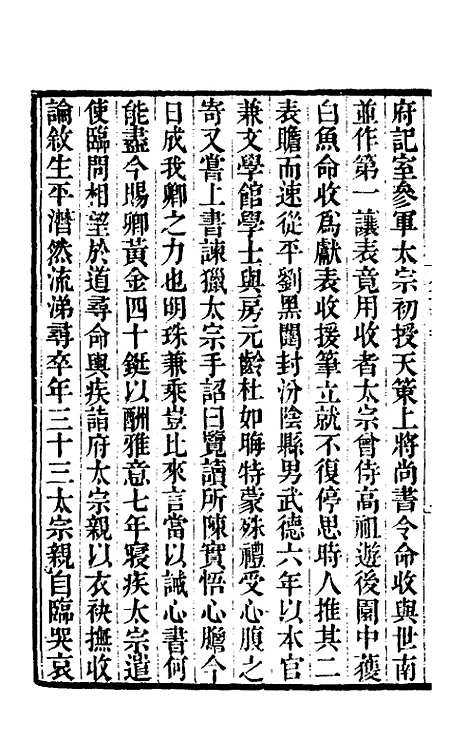 府記室參軍太宗初授天策上將尚書令命收與世南
並作第一讓表竟用收者太宗曾侍高祖遊後園中獲
白魚命收爲獻表收援筆立就不復停思時人推其二
表贍而速從平劉黑闥封汾陰縣男武德六年以本官
兼文學館學士與房元齡杜如晦特蒙殊禮受心腹之
寄又嘗上書諫獵太宗手詔曰覽讀所陳實悟心膽今
日成我卿之力也明珠兼乘豈比來言當以誡心書何
能盡今賜卿黃金四十鋌以酬雅意七年寢疾太宗遣
使臨問相望於道尋命輿疾詣府太宗親以衣袂撫收
論敘生平潸然流涕尋卒年三十三太宗親自臨哭哀